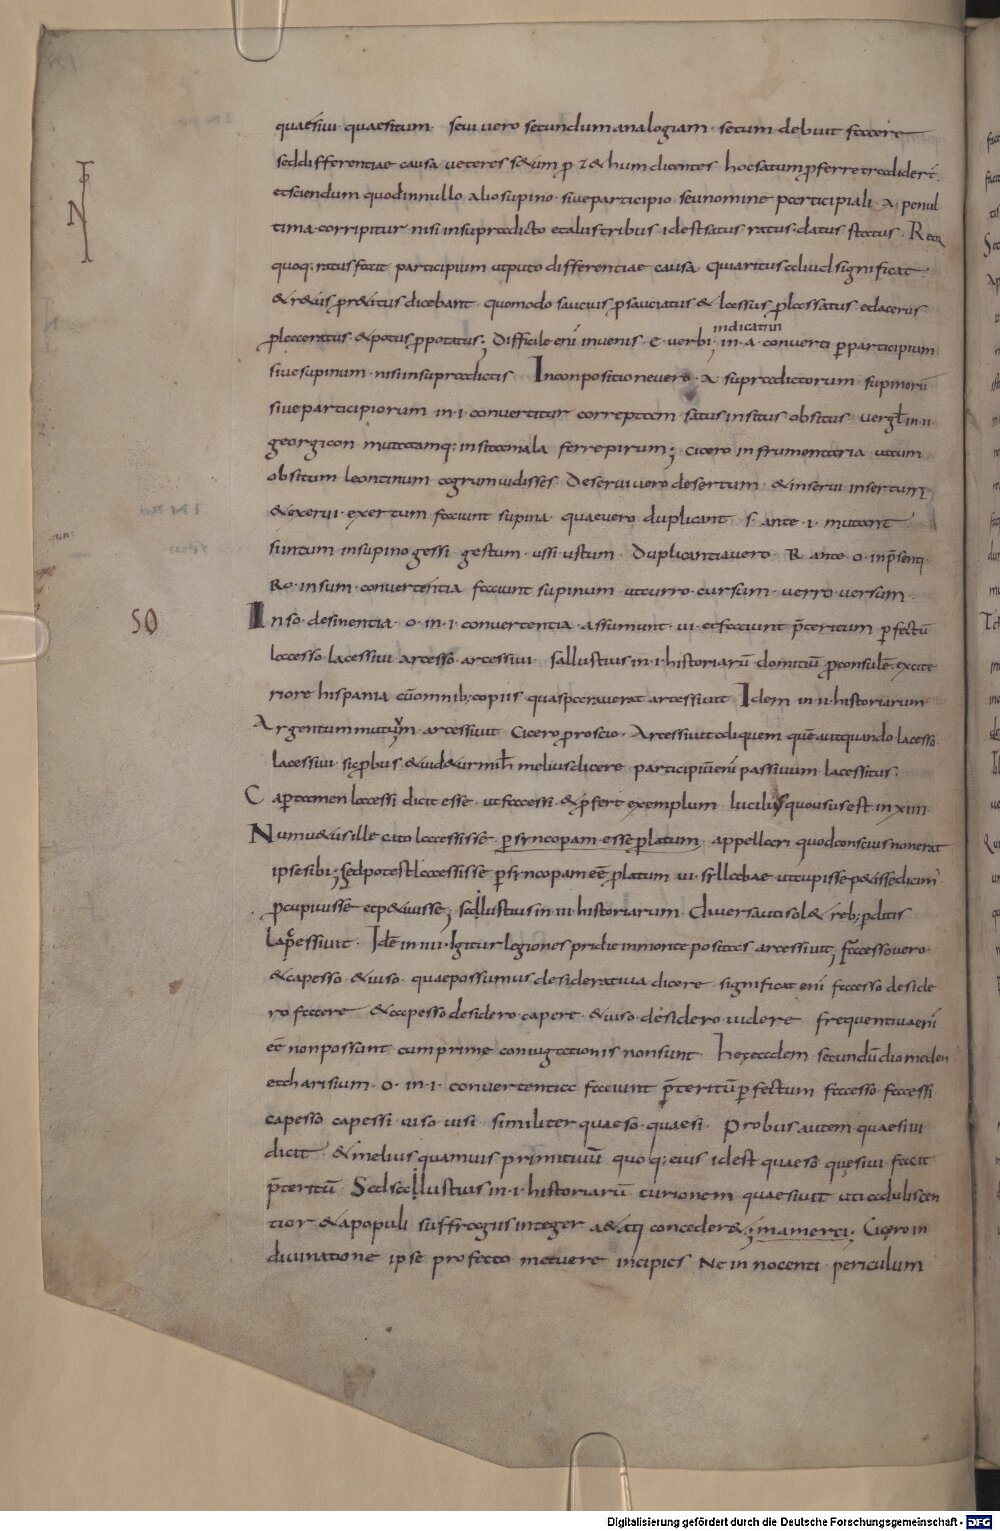 quaesivi quaesitum sevi vero secundum analogiam setum debuit facere
sed differentiae causa veteres s&um p̄ r & hum dicentes hoc satum p̄ferre tradider̄
et sciendum quod in nullo alio supino sive participio seu nomine participiali a penul
tima corripitur nisi in supradicto et aliis tribus id est satus ratus datus status Reor
quoq; ratus facit participium ut puto differentiae causa quia ritus aliud significat
& r&us p̄r&itus dicebant quomodo saucius p̄ sauciatus & lassus p̄ lassatus et lacerus
p̄ laceratus & potus p̄ potatus; Difficile eni invenis e verbi in a converti p̄ participium
indicativi
sive supinum nisi in supradictis In conpositione vero a supradictorum supinorū
sive participiorum in i convertitur correptam satus insitus obsitus vergł in ii
georgicon mutatamq; insita mala ferre pirum; cicero in frumentaria utium
obsitum leontinum agrum vidisses Deserui vero desertum & inserui insertum
& exerui exertum faciunt supina quae vero duplicant s ante i mutant
si in tum in supino gessi gestum ussi ustum Duplicantia vero R ante o in p̄senti
Ro in sum convertentia faciunt supinum ut curro cursum verro versum
SO
In so desinentia o in i convertentia assumunt vi et faciunt p̄teritum p̄fectū
lacesso lacessivi arcesso arcessivi sallustius in i historiarū domitiū proconsulē ex cite
riore hispania cū omnib; copiis quas paraverat arcessivit Idem in ii historiarum
Argentum mutuum arcessivit Cicero p̄ roscio Arcessivit aliquem quē aliquando lacesso
lacessivi sic p̄bus & vid&ur mihi melius dicere participiū eni passivum lacessitus
Cap̄ tamen lacessi dicit esse ut facessi & p̄fert exemplum lucilii quo usus est in xiiii
Numu&iis ille cato lacessisse p̄ syncopam esse p̄latum appellari quod conscius non erat
ipse sibi; sed potest lacessisse p̄ syncopam eē p̄latum vi syllabae ut cupisse p&isse dicunt
p̄ cupivisse et p&ivisse; sallustius in iii historiarum Aliversa ut solet reb; p̄ditis
lap̄essivit Idē in iiii Igitur legiones pridie in monte positas arcessivit, Facesso vero
& capesso & viso quae possumus desiderativa dicere significat eni facesso deside
ro facere & capesso desidero capere & viso desidero videre frequentiva eni
eē non possunt cum prime coniugationis non sunt Hęc eadem secundū diomeden
et charisium o in i convertentia faciunt p̄teritū p̄fectum facesso facessi
capesso capessi viso visi similiter quaeso quaesi Probus autem quaesivi
dicit & melius quamvis primitivū quoq; eius id est quaeso quęsivi facit
p̄teritū Sed sallustius in i historiarū curionem quaesivit uti adulescen
tior & a populi suffragiis integer a&ati conceder&; mamerci; Cicero in
divinatione ipse profecto metuere incipies Ne innocenti periculum
Digitalisierung gefördert durch die Deutsche Forschungsgemeinschaft - DFG